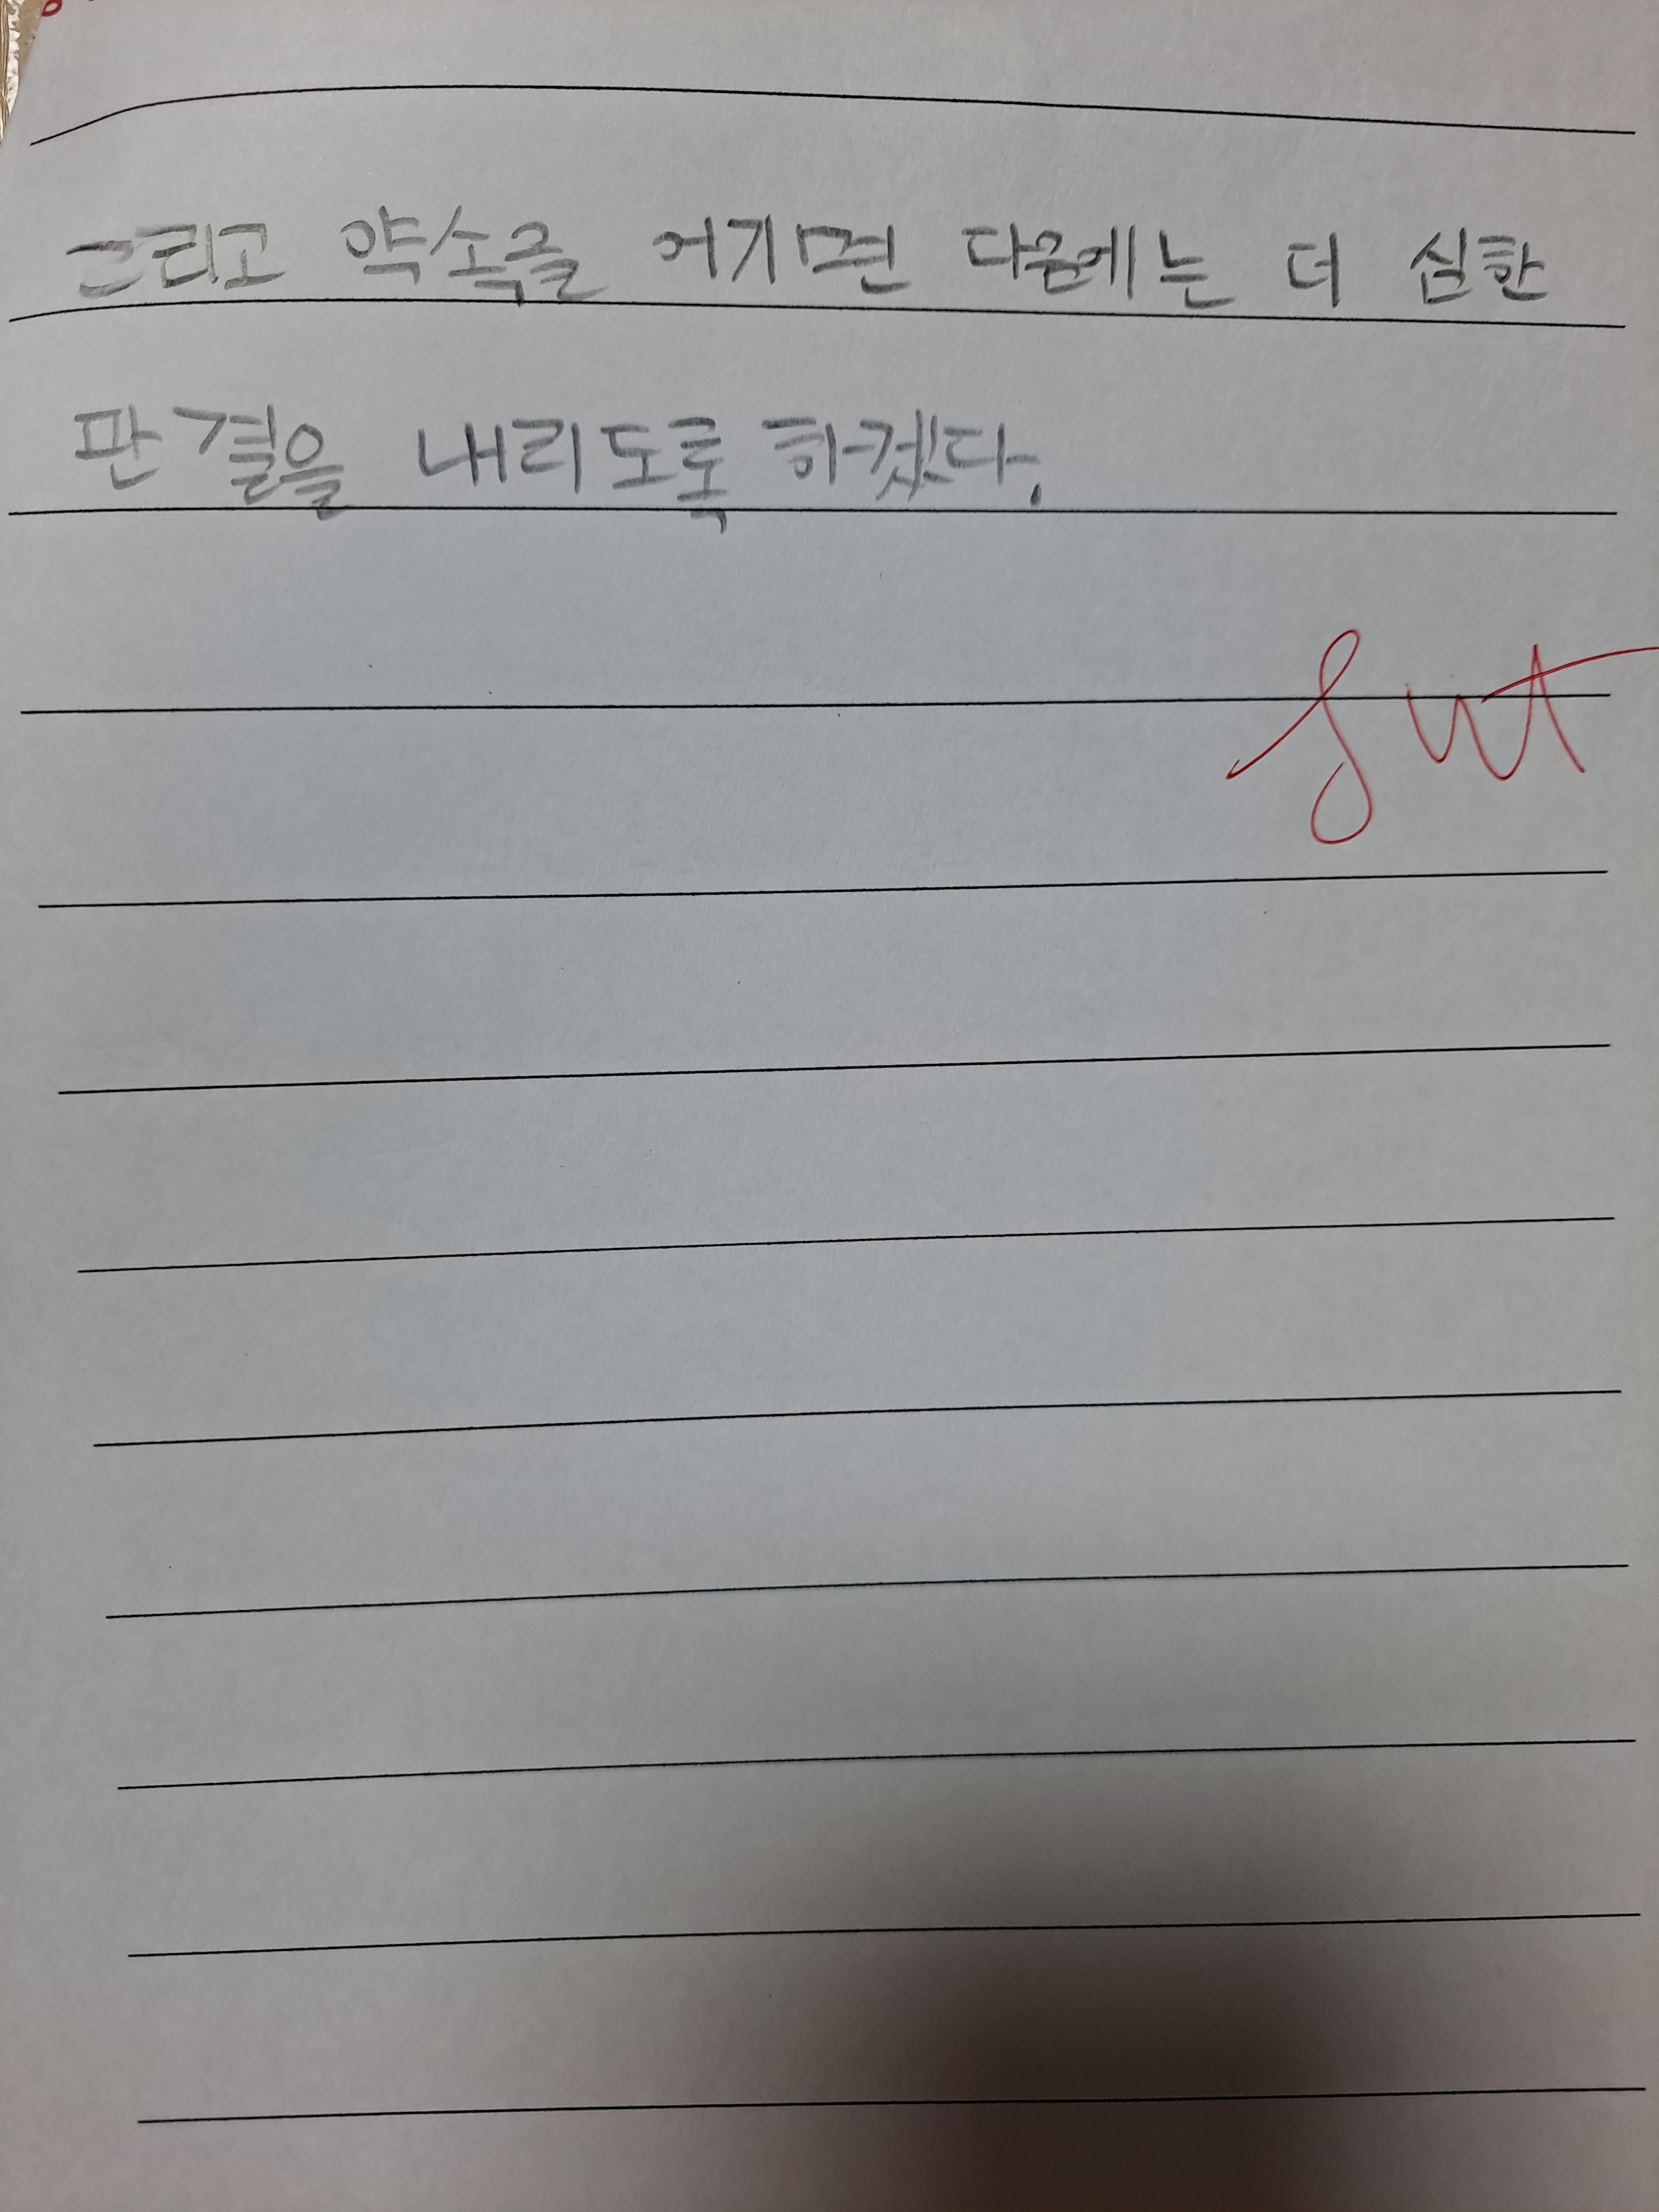 그리고 약속을 어기면 다음에는 더 심한
판결을 내리도록 하겠다.